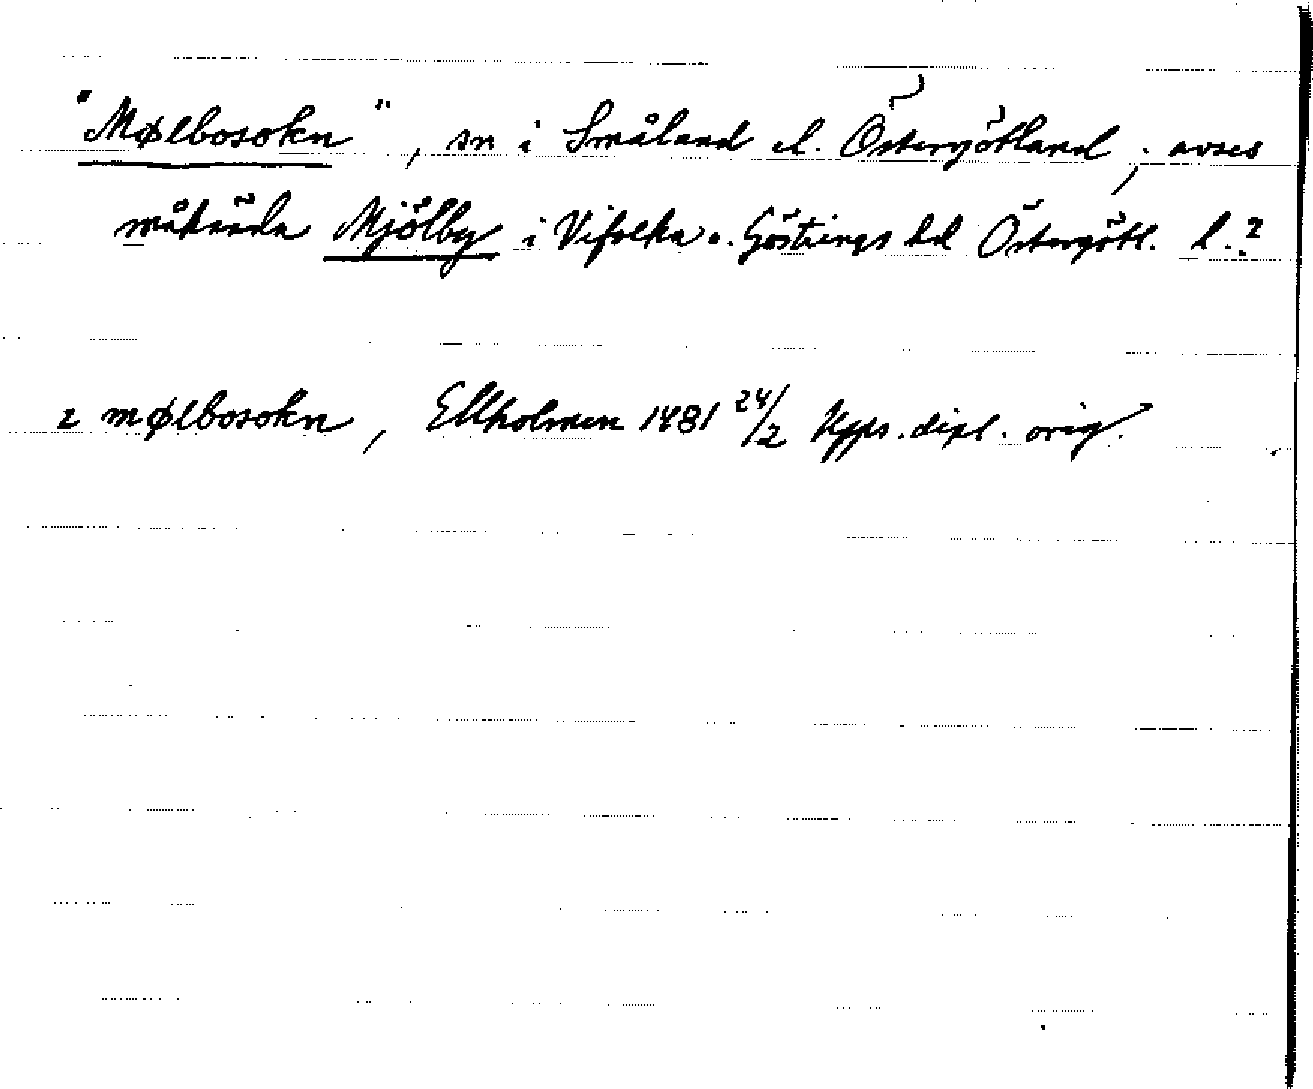 "Mølbosokn", sn i Småland el. Östergötland; avses
måhända Mjölby i Vifolka o. Göstrings hd Östergötl. l.?
z mølbosokn, Ekholmen 1481 24/2 Upps. dipl. orig.